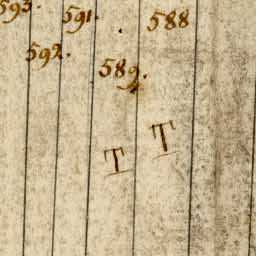 593. 591. 588
592. 589.
T T